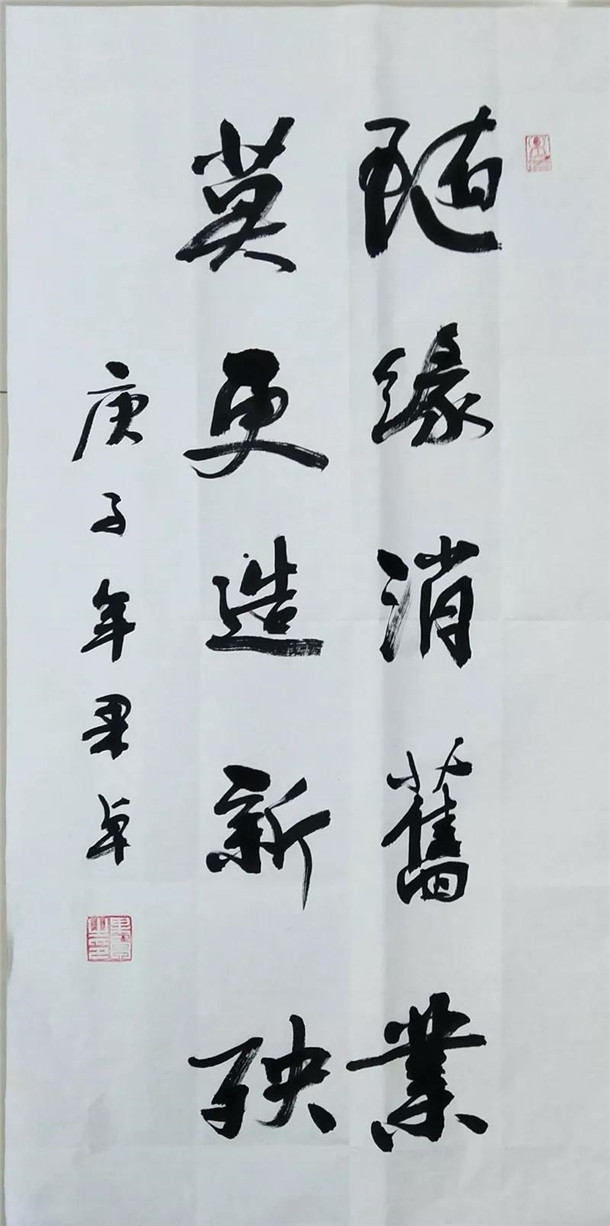 随缘消舊業
莫更造新殃
庚子年墨卓